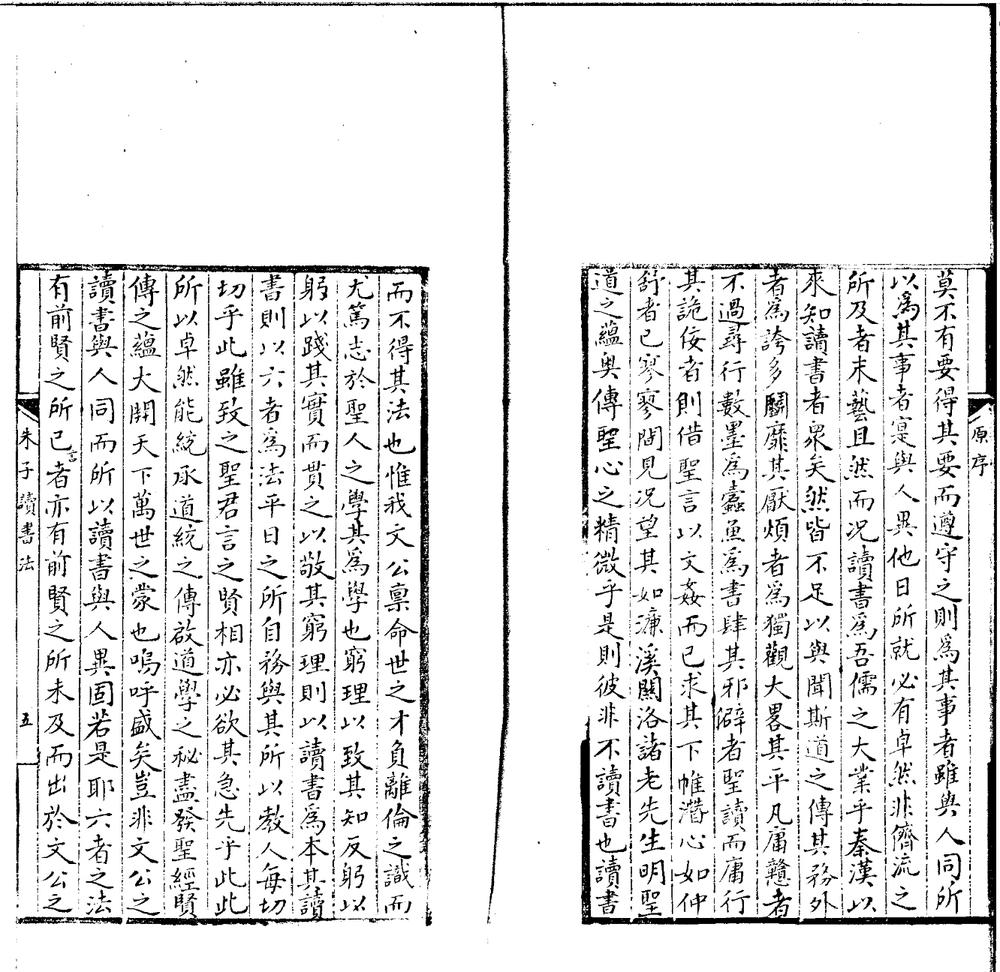 莫不有要得其要而遵守之則為其事者雖與人同所
以為其事者寔與人異他日所就必有卓然非儕流之
所及者末藝且然而况讀書為吾儒之大業乎秦漢以
來知讀書者衆矣然皆不足以與聞斯道之傳其務外
者為誇多鬭靡其厭煩者為獨觀大畧其平凡庸戆者
不過尋行數墨為蠹魚為書肆其邪僻者聖讀而庸行
其詭佞者則借聖言以文姦而已求其下帷潛心如仲
舒者已寥寥間見况望其如濂溪關洛諸老先生明聖
道之蘊奥傳聖心之精微乎是則彼非不讀書也讀書
原序
而不得其法也惟我文公禀命世之才負離倫之識而
尤篤志於聖人之學其為學也窮理以致其知反躬以
躬以踐其實而貫之以敬其窮理則以讀書為本其讀
書則以六者為法平日之所自務與其所以教人每切
切乎此雖致之聖君言之賢相亦必欲其急先乎此此
所以卓然能統承道統之傳啟道學之秘盡發聖經賢
傳之蘊大開天下萬世之蒙也嗚呼盛矣豈非文公之
讀書與人同而所以讀書與人異固若是耶六者之法
有前賢之所已言者亦有前賢之所未及而出於文公之
朱子讀書法 五